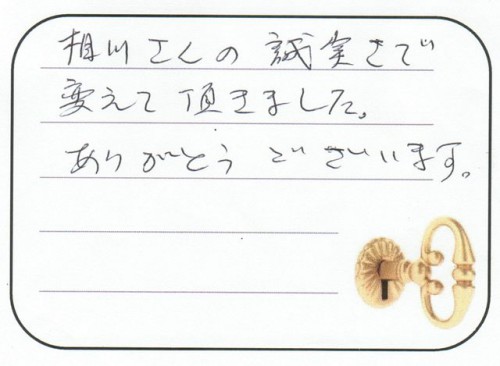 相川さんの誠実さで
変えて頂きました。
ありがとうございます。